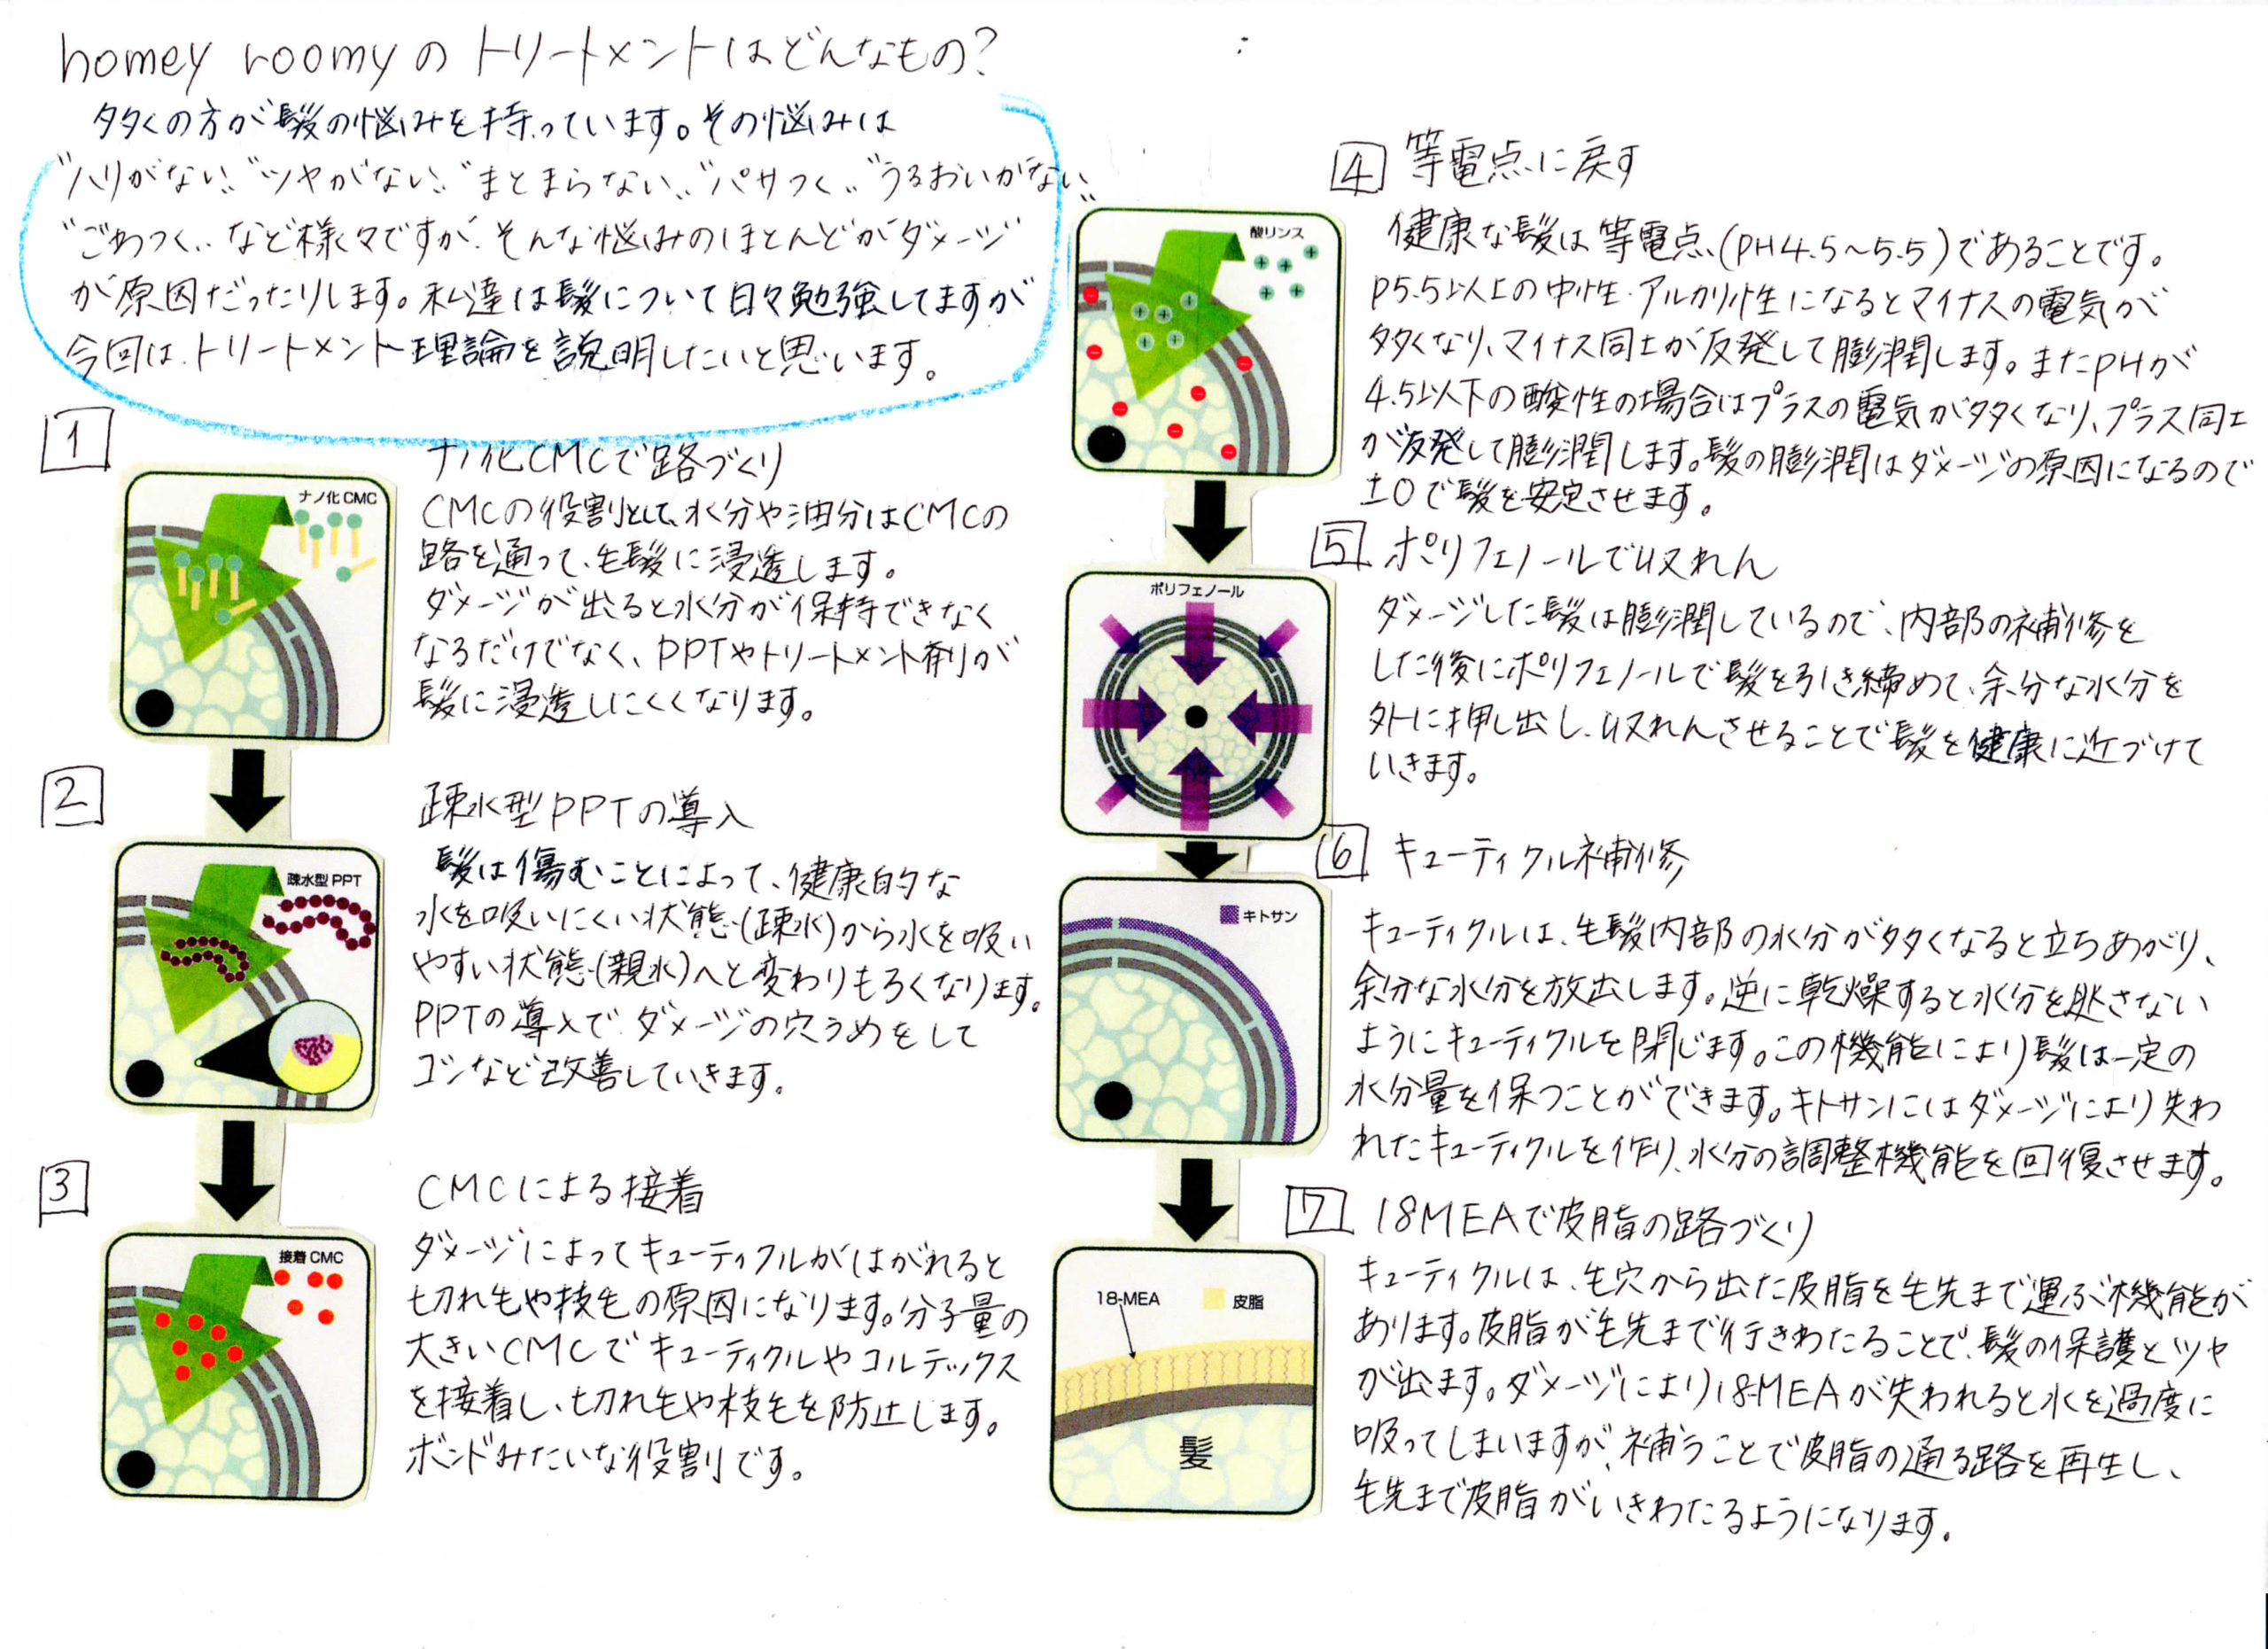 homey roomyのトリートメントはどんなもの?
多くの方が髪の悩みを持っています。その悩みは
"ハリがない" "ツヤがない" "まとまらない" "パサつく" "うるおいがない"
"ごわつく" など様々ですが、そんな悩みのほとんどがダメージ
が原因だったりします。私達は髪について日々勉強してますが
今回は、トリートメント理論を説明したいと思います。
1
ナノ化CMCで路づくり
ナノ化 CMC
CMCの役割として、水分や油分はCMCの
路を通って、毛髪に浸透します。
ダメージが出ると水分が保持できなく
なるだけでなく、PPTやトリートメント剤が
髪に浸透しにくくなります。
2
疎水型PPTの導入
疎水型 PPT
髪は傷むことによって、健康的な
水を吸いにくい状態(疎水)から水を吸い
やすい状態(親水)へと変わりもろくなります。
PPTの導入で、ダメージの穴うめをして
コシなど改善していきます。
3
CMCによる接着
接着 CMC
ダメージによってキューティクルがはがれると
切れ毛や枝毛の原因になります。分子量の
大きいCMCでキューティクルやコルテックス
を接着し、切れ毛や枝毛を防止します。
ボンドみたいな役割です。
4 等電点に戻す
酸リンス
健康な髪は等電点(PH4.5〜5.5)であることです。
P5.5以上の中性・アルカリ性になるとマイナスの電気が
多くなり、マイナス同士が反発して膨潤します。またPHが
4.5以下の酸性の場合はプラスの電気が多くなり、プラス同士
が反発して膨潤します。髪の膨潤はダメージの原因になるので
±0で髪を安定させます。
5 ポリフェノールで収れん
ポリフェノール
ダメージした髪は膨潤しているので、内部の補修を
した後にポリフェノールで髪を引き締めて、余分な水分を
外に押し出し、収れんさせることで髪を健康に近づけて
いきます。
6 キューティクル補修
キトサン
キューティクルは、毛髪内部の水分が多くなると立ちあがり、
余分な水分を放出します。逆に乾燥すると水分を逃さない
ようにキューティクルを閉じます。この機能により髪は一定の
水分量を保つことができます。キトサンにはダメージにより失わ
れたキューティクルを作り、水分の調整機能を回復させます。
7 18MEAで皮脂の路づくり
18-MEA
皮脂
髪
キューティクルは、毛穴から出た皮脂を毛先まで運ぶ機能が
あります。皮脂が毛先まで行きわたることで、髪の保護とツヤ
が出ます。ダメージにより18-MEAが失われると水を過度に
吸ってしまいますが、補うことで皮脂の通る路を再生し、
毛先まで皮脂がいきわたるようになります。